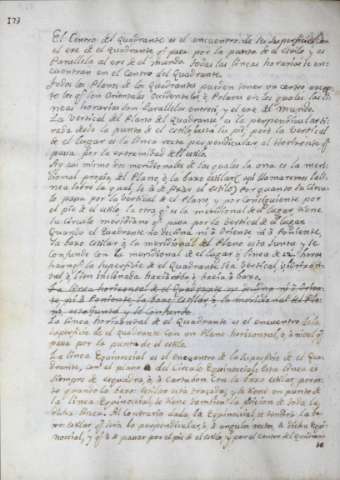 173
El Centro del Quadrante es el encuentro de la superficie con
el exe de el Quadrante q.e pasa por la punta de el estilo y es
Parallela al exe de el mundo. todas las lineas horarias de en
cuentran en el Centro del Quadrante.
todos los Planos de los Quadrantes pueden tener un centro
los q.e son Orientales Occidentales ò Polares en los quales las li
neas horarias son Parallelas entre si y el exe de el mundo.
La Vertical del Plano del Quadrante es la perpendicular ti
rada desde la punta de el estilo hasta su pie, pero la Vertical
de el lugar es la linea recta perpendicular al Horizonte q.e
pasa por la extremidad de el estilo.
Ay asi mismo dos meridionales de las quales la una es la meri
dional propia del Plano, ò la baxa estilar
nea sobre la qual se à de poner el estilo por quanto su Circu
lo pasa por la Vertical de el Plano, y por consiguiente por
el pie de el estilo. la otra q.e es la meridional de el lugar tiene
su Circulo meridiano q.e pasa por la Vertical de el lugar.
Quando el Quadrante no declina ni à Oriente ni à Poniente,
la baxa estilar ò la meridional del Plano esta Junta y se
Confunde con la meridional de el lugar o linea de 12 horas
haràse la superficie de el Quadrante sea Vertical
tal, ò bien inclinada hacia alto ò hacia à baxo.
La linea horizontal de el Quadrante no declina ni à Orien
te ni à Poniente la baxa estilar ò la meridional del Pla
no esta Junta y se Confunde
La linea horizontal de el Quadrante es el encuentro de la
superficie de el Quadrante con un Plano horizontal, ò à nivel q.e
pasa por la punta de el estilo.
La linea Equinoccial es el encuentro de la superficie de el Qua
drante, con el plano del Circulo Equinoccial, esta linea es
siempre de esquadra, ò à Cartabon Con la baxa estilar, por
quando la baxa estilar esta trazada, y se tiene un punto de
la linea Equinoccial, se tiene tambien la posicion de toda la
dicha linea. Al Contrario dada la Equinoccial, se tendra la ba
xa estilar q.e sera la perpendicular, ò à angulos rectos, à dicha Equi
noccial, y q.e à de pasar por el pie de el estilo, y por el centro del Quadrante